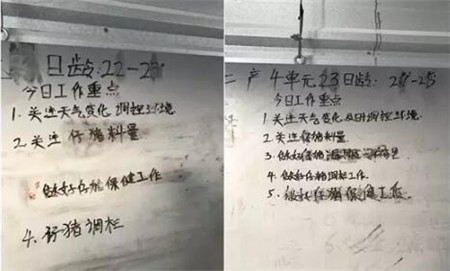 日龄:22-2
今日工作重点
1. 关注天气变化 调控环境
2. 关注 仔猪料量
做好仔猪保健工作
4. 仔猪调栏
二 产 4单元 23日龄: 2-25
今日工作重点
1. 关注天气变化及时调控环境
2. 关注仔猪料量
3. 做好仔猪
4. 做好仔猪调栏工作.
5. 做好仔猪保健工作